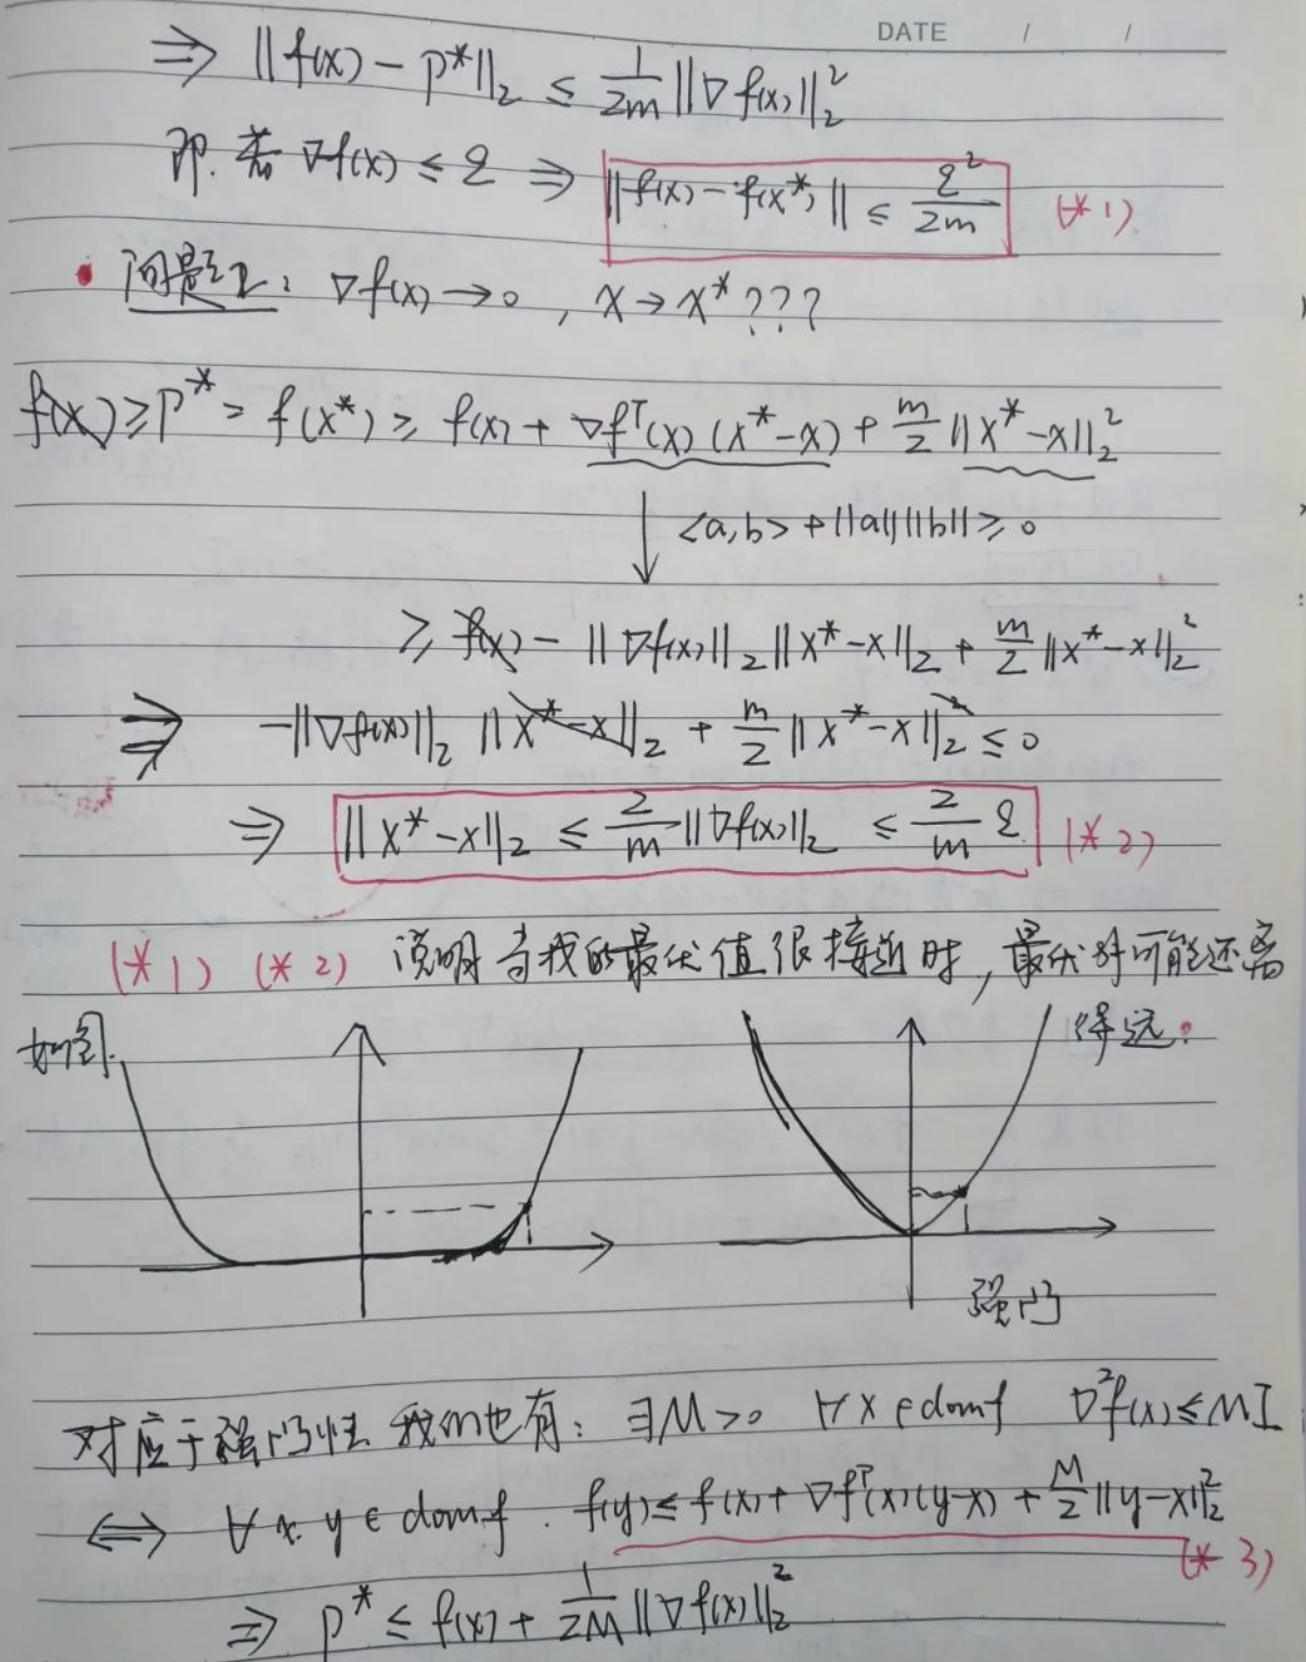 DATE / /
⇒ ||f(x) - p*||₂ ≤ 1/2m ||∇f(x)||₂²
即. 若 ∇f(x) ≤ ε ⇒ ||f(x) - f(x*)|| ≤ ε²/2m (*1)
问题2: ∇f(x) → 0, x → x* ???
f(x) ≥ p* = f(x*) ≥ f(x) + ∇fᵀ(x)(x*-x) + m/2 ||x*-x||₂²
↓ <a,b> + ||a|| ||b|| ≥ 0
≥ f(x) - ||∇f(x)||₂ ||x*-x||₂ + m/2 ||x*-x||₂²
⇒ -||∇f(x)||₂ ||x*-x||₂ + m/2 ||x*-x||₂² ≤ 0
⇒ ||x*-x||₂ ≤ 2/m ||∇f(x)||₂ ≤ 2/m ε. (*2)
(*1) (*2) 说明当我的最优值很接近时, 最优解可能还离
得远.
如图.
强凸
对应于强凸性 我们也有: ∃M>0 ∀x∈domf ∇²f(x) ≤ MI
⇔ ∀x.y∈domf. f(y) ≤ f(x) + ∇fᵀ(x)(y-x) + M/2 ||y-x||₂²
(*3)
⇒ p* ≤ f(x) + 1/2M ||∇f(x)||₂²